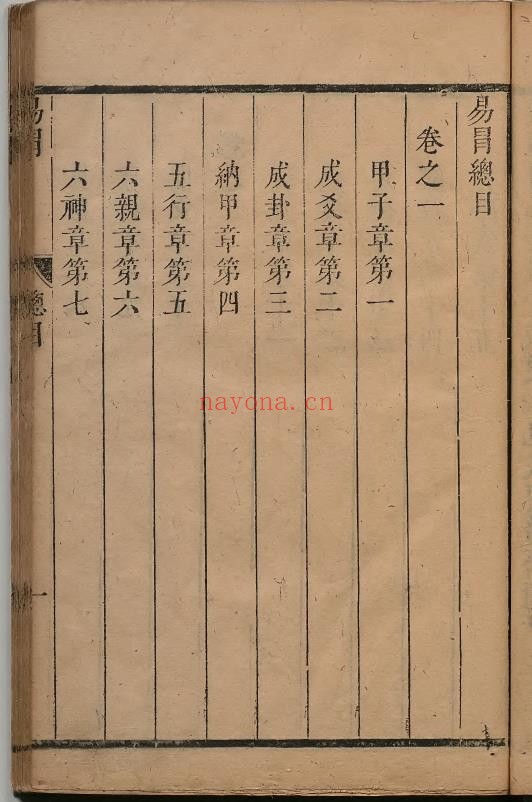 易冒總目
卷之一
甲子章第一
成爻章第二
成卦章第三
納甲章第四
五行章第五
六親章第六
六神章第七
易冒
總目
一
nayona.cn